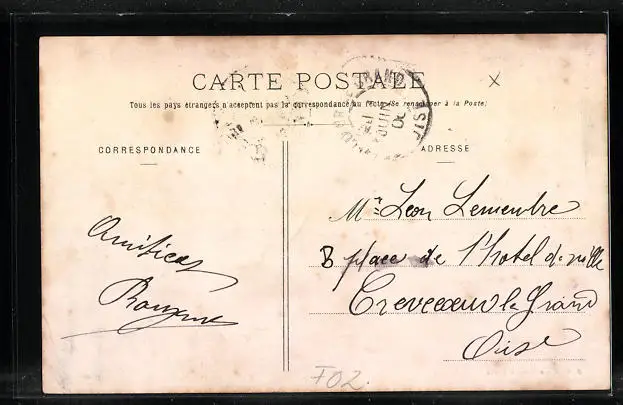 CARTE POSTALE
Tous les pays étrangers n'acceptent pas la correspondance au recto (Se renseigner à la Poste)
CORRESPONDANCE
ADRESSE
Mr Leon Lemembre
8 place de l'hotel de ville
Crevecoeur le Grand
Oise
Amitiés
GRAND
OISE
JUIN
F02.